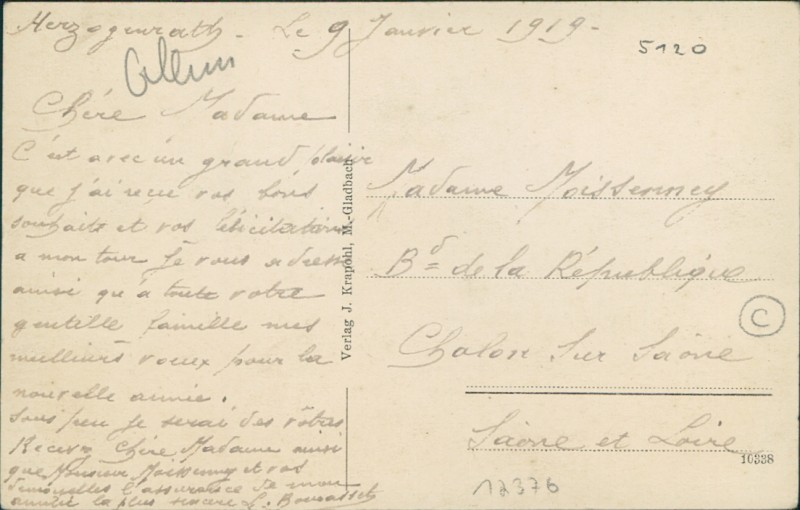 Herzogenrath - Le 9 Janvier 1919 -
5120
Chére Madame
C'est avec un grand plaisir
que j'ai reçu vos bons
souhaits et vos félicitations
a mon tour je vous adresse
ainsi qu'a toute votre
gentille famille mes
meilleurs voeux pour la
nouvelle année.
Sous peu je serai des vôtres
Recevez Chére Madame ainsi
que Monsieur Moissenney et vos
demoiselles l'assurance de mon
amitié la plus sincere L.
Verlag J. Krapohl, M.-Gladbach
Madame Moissenney
Bd de la République
Chalon Sur Saône
Saône et Loire
C
10338
17376